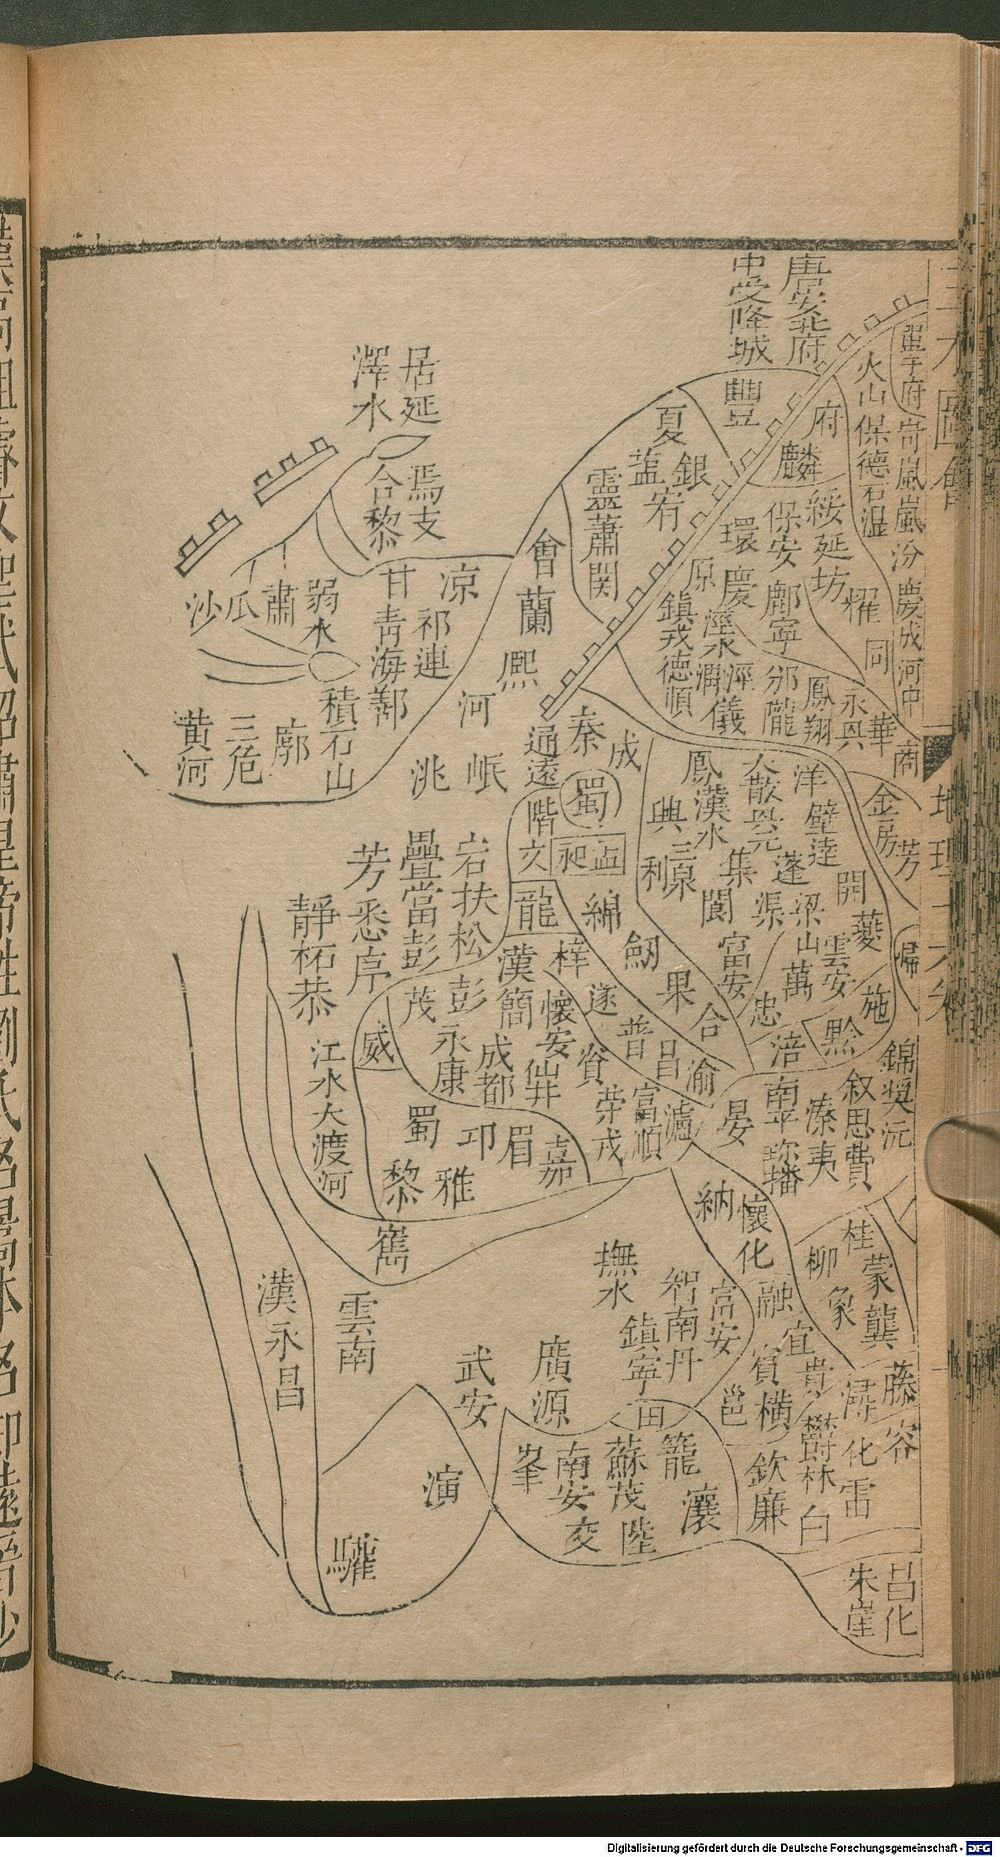 唐安北府
中受降城
單于府
火山保德石温
岢嵐嵐汾慶成河中
府
麟
豐
夏
銀
宥
靈蕭関
綏延坊
保安
鄜寧
環慶
原
鎮戎德順
涇水
涇
渭
儀
邠隴
鳳翔
耀
同
華
商
居延
澤水
焉支
合黎
會
蘭
熙
河
洮
岷
涼
甘
祁連
青海鄯
弱水
肅
瓜
沙
積石山
廓
三危
黄河
通遠
秦
成
蜀
階
文
龍
鳳
漢水
興
三泉
利
集
閬
洋
壁
蓬
渠
梁山
萬
富安
開
夔
雲安
金
房
芳
歸
施
黔
忠
涪
南平
珍播
溱
夷
叙思費
錦獎沅
綿
劒
果
合
渝
晏
瀘
富順
昌
普
遂
梓
資
榮
戎
漢
簡
懷安
成都
彭
永康
茂
威
蜀
邛
眉
嘉
雅
黎
嶲
岩扶松
疊當彭
芳
悉
静柘恭
江水大渡河
漢永昌
雲南
撫水
智南丹
鎮寧
富安
納
懷化
融
宜
賓
橫
貴
邕
柳
象
桂
蒙龔
藤
容
潯
化
雷
鬱林
白
欽
廉
田
廣源
武安
演
驩
峯
南安
交
蘇茂
陸
籠
瀼
昌化
朱崖
地理
Digitalisierung gefördert durch die Deutsche Forschungsgemeinschaft - DFG